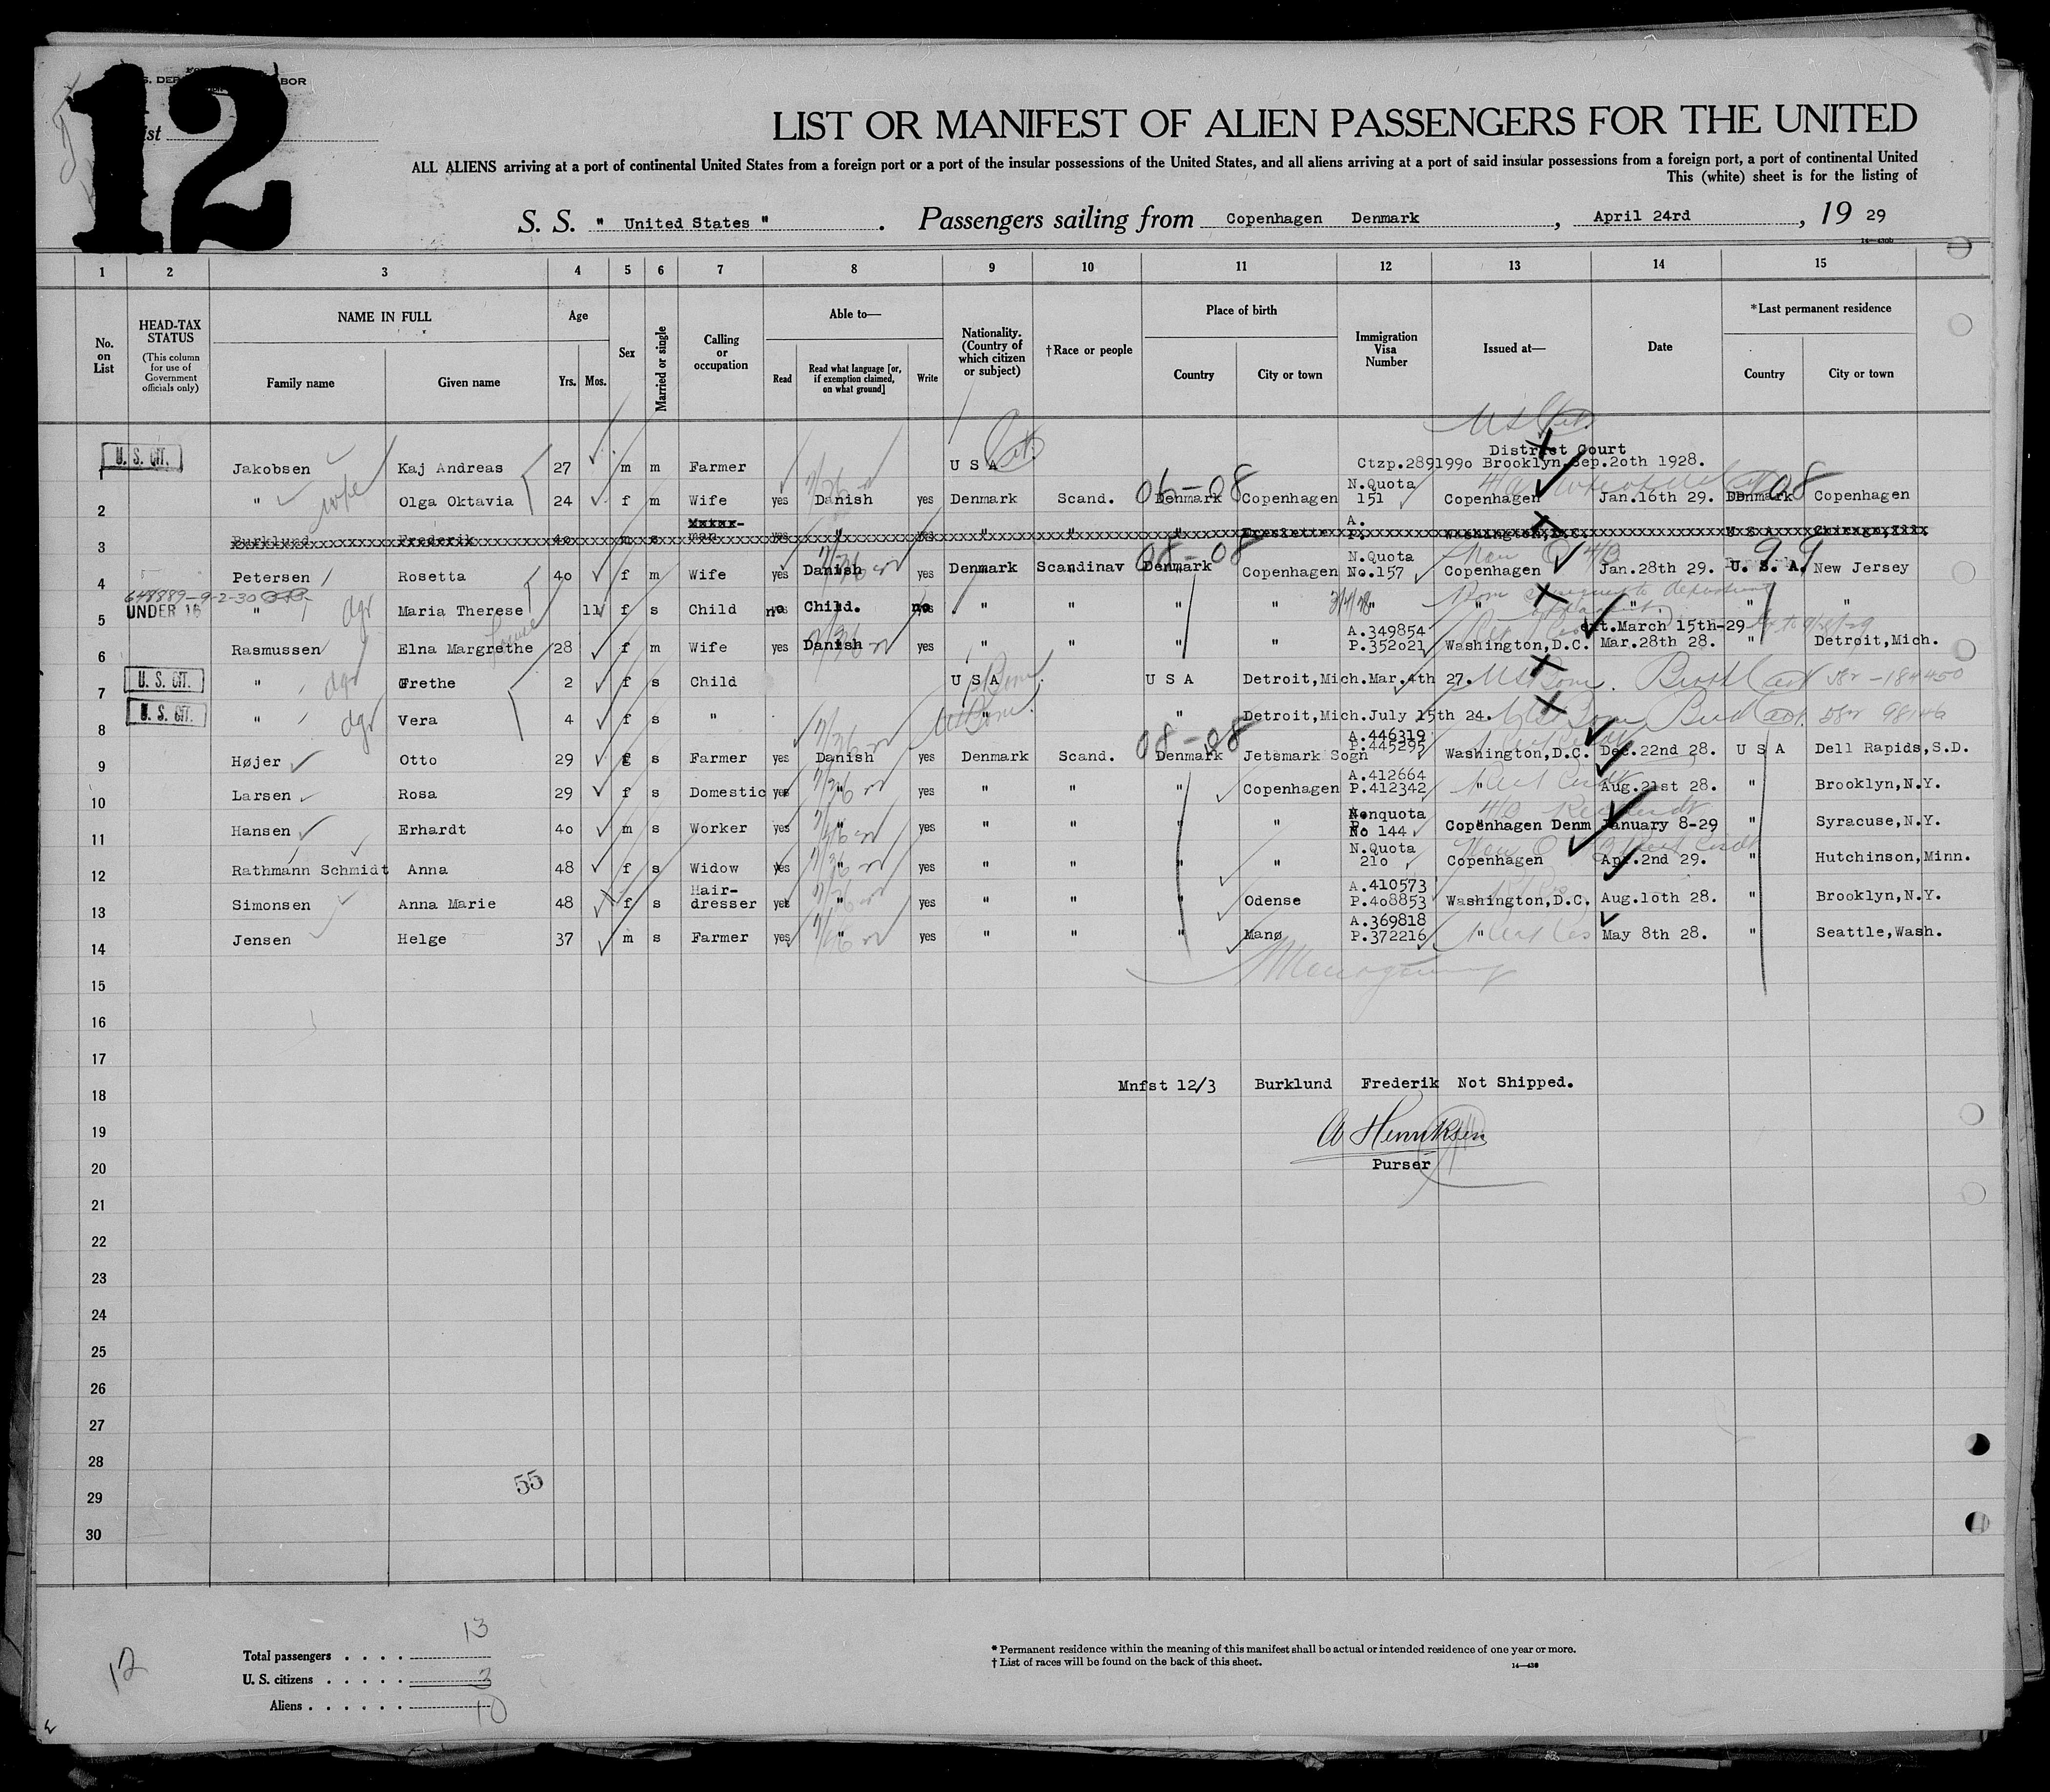 12
LIST OR MANIFEST OF ALIEN PASSENGERS FOR THE UNITED
ALL ALIENS arriving at a port of continental United States from a foreign port or a port of the insular possessions of the United States, and all aliens arriving at a port of said insular possessions from a foreign port, a port of continental United
This (white) sheet is for the listing of
S. S. " United States " . Passengers sailing from Copenhagen Denmark , April 24rd , 19 29
1 2 3 4 5 6 7 8 9 10 11 12 13 14 15
No. on List
HEAD-TAX STATUS (This column for use of Government officials only)
NAME IN FULL Family name Given name
Age Yrs. Mos.
Sex
Married or single
Calling or occupation
Able to— Read Read what language [or, if exemption claimed, on what ground] Write
Nationality. (Country of which citizen or subject)
†Race or people
Place of birth Country City or town
Immigration Visa Number
Issued at—
Date
*Last permanent residence Country City or town
District Court
1 U. S. CIT. Jakobsen Kaj Andreas 27 m m Farmer U S A Ctzp.289199o Brooklyn Sep.2oth 1928.
2 " wife Olga Oktavia 24 f m Wife yes Danish yes Denmark Scand. 06-08 Denmark Copenhagen N.Quota 151 Copenhagen Jan.16th 29. Denmark 08 Copenhagen
3 Burklund Frederik 4o m s man yes " yes " " " A. P. Washington,D.C. U S A Chicago,Ill
4 Petersen Rosetta 4o f m Wife yes Danish yes Denmark Scandinav 08-08 Denmark Copenhagen N.Quota No.157 Copenhagen Jan.28th 29. U. S. A. 99 New Jersey
648889-9-2-30
5 UNDER 16 " dgr Maria Therese 11 f s Child no Child. no " " " " " " " " "
6 Rasmussen Elna Margrethe 28 f m Wife yes Danish yes " " " " A.349854 P.352o21 Washington,D.C. ext.March 15th-29 Mar.28th 28. " Detroit,Mich.
7 U. S. CIT. " dgr Grethe 2 f s Child U S A U S A Detroit,Mich.Mar.4th 27.
8 U. S. CIT. " dgr Vera 4 f s " " " Detroit,Mich.July 15th 24.
9 Højer Otto 29 s Farmer yes Danish yes Denmark Scand. 08-08 Denmark Jetsmark Sogn A.446319 P.445295 Washington,D.C. Dec.22nd 28. U S A Dell Rapids,S.D.
10 Larsen Rosa 29 f s Domestic yes " yes " " " Copenhagen A.412664 P.412342 " Aug.21st 28. " Brooklyn,N.Y.
11 Hansen Erhardt 4o m s Worker yes " yes " " " " Nonquota No 144 Copenhagen Denm January 8-29 " Syracuse,N.Y.
12 Rathmann Schmidt Anna 48 f s Widow yes " yes " " " " N.Quota 21o Copenhagen Apr.2nd 29. " Hutchinson,Minn.
13 Simonsen Anna Marie 48 f s Hair- dresser yes " yes " " " Odense A.410573 P.4o8853 Washington,D.C. Aug.1oth 28. " Brooklyn,N.Y.
14 Jensen Helge 37 m s Farmer yes " yes " " " Manø A.369818 P.372216 " May 8th 28. " Seattle,Wash.
15
16
17
18 Mnfst 12/3 Burklund Frederik Not Shipped.
19 Henriksen
20 Purser
21
22
23
24
25
26
27
28
29 55
30
12
Total passengers . . . . 13
U. S. citizens . . . . . 3
Aliens . . . . . . 10
* Permanent residence within the meaning of this manifest shall be actual or intended residence of one year or more.
† List of races will be found on the back of this sheet.